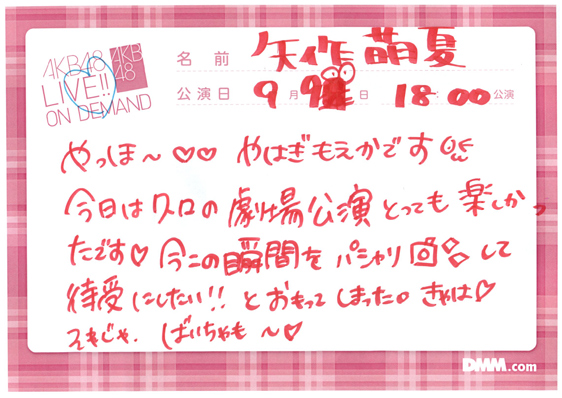 AKB48
LIVE!!
ON DEMAND
AKB
48
名前 矢作萌夏
公演日 9月9日 18:00公演
やっほ〜♡♡ やはぎもえかです
今日は久々の劇場公演とっても楽しかっ
たです♡ 今この瞬間をパシャリして
待受にしたい!! とおもってしまった。きゃは♡
それじゃ. ばいちゃも〜♡
DMM.com